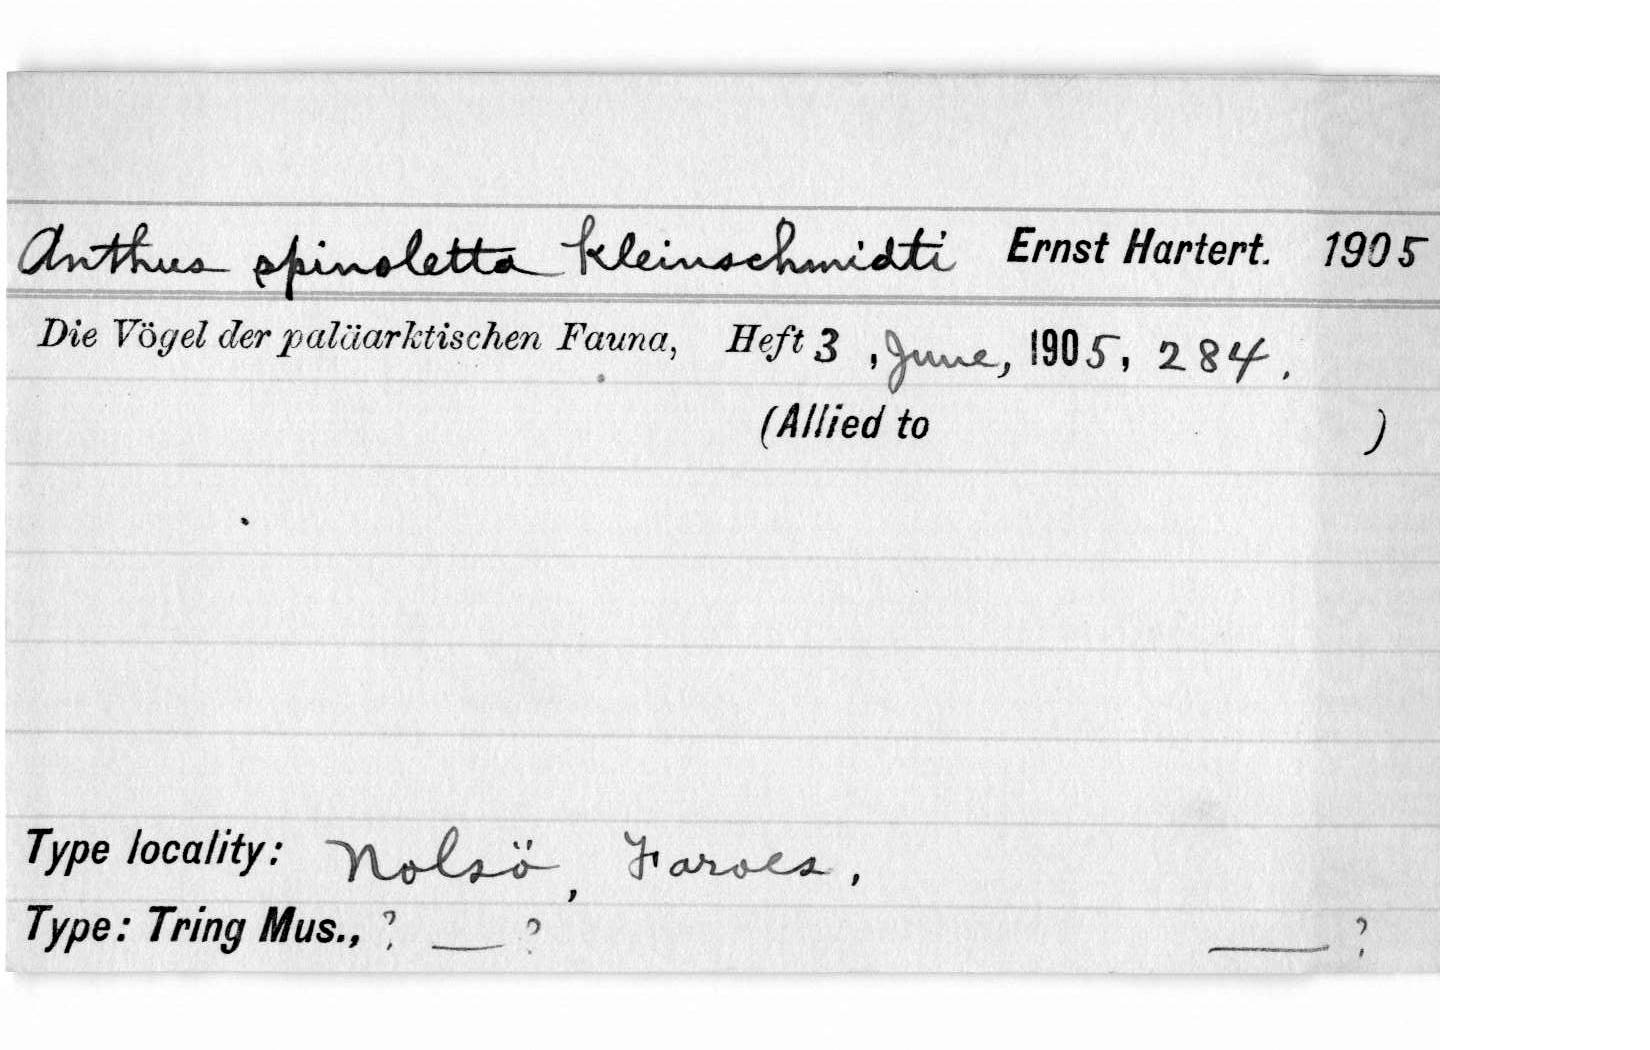 Anthus spinoletta kleinschmidti Ernst Hartert. 1905
Die Vögel der paläarktischen Fauna, Heft 3, June, 1905, 284.
(Allied to )
Type locality: Nolsö, Faroes,
Type: Tring Mus., ? — ? — ?